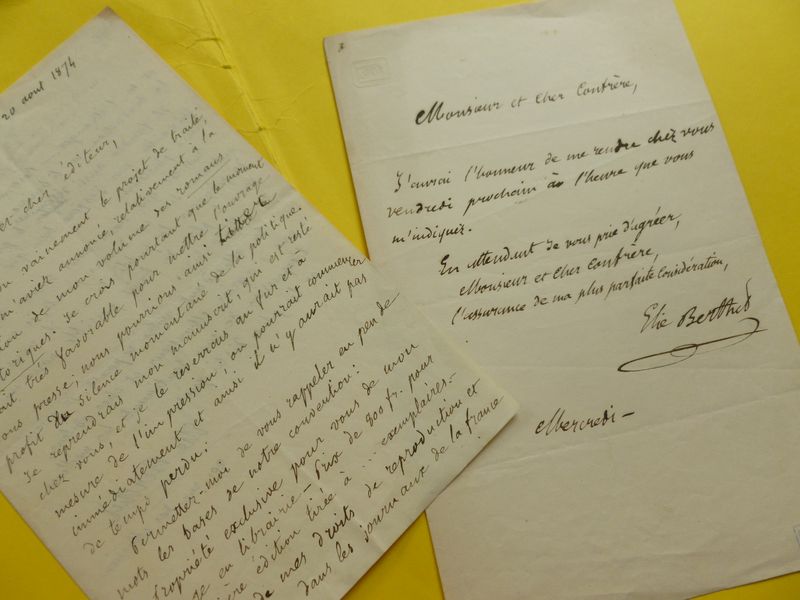 20 aout 1874
er cher éditeur,
vainement le projet de traité,
m'aviez annoncé, relativement à la
tion de mon volume des romans
toriques. Je crois pourtant que le moment
ait très favorable pour mettre l'ouvrage
ous presse, nous pourrions ainsi
profit du silence momentané de la politique.
Je reprendrais mon manuscrit, qui est resté
chez vous, et je le reverrais au fur et à
mesure de l'impression; on pourrait commencer
immédiatement et ainsi il n'y aurait pas
de temps perdu.
Permettez-moi de vous rappeler en peu de
mots les bases de notre convention:
Propriété exclusive pour vous de mon
ge en librairie — Prix de 800 fr. pour
ère édition tirée à ... exemplaires.—
de mes droits de reproduction et
dans les journaux de la france
Monsieur et Cher Confrère,
J'aurai l'honneur de me rendre chez vous
vendredi prochain à l'heure que vous
m'indiquez.
En attendant je vous prie d'agréer,
Monsieur et Cher Confrère,
l'assurance de ma plus parfaite considération,
Elie Berthet
Mercredi —